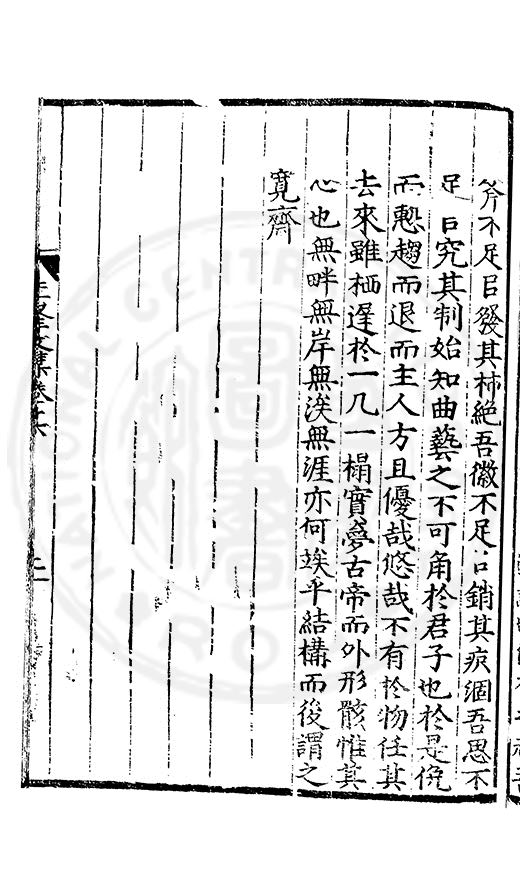 斧不足㠯發其柿絶吾徽不足㠯銷其痕涸吾思不
足㠯究其制始知曲藝之不可角於君子也於是俛
而慙趨而退而主人方且優哉悠哉不有於物任其
去來雖栖遲於一几一榻實夢古帝而外形骸惟其
心也無畔無岸無涘無涯亦何竢乎結構而後謂之
寬齋
文集卷十六